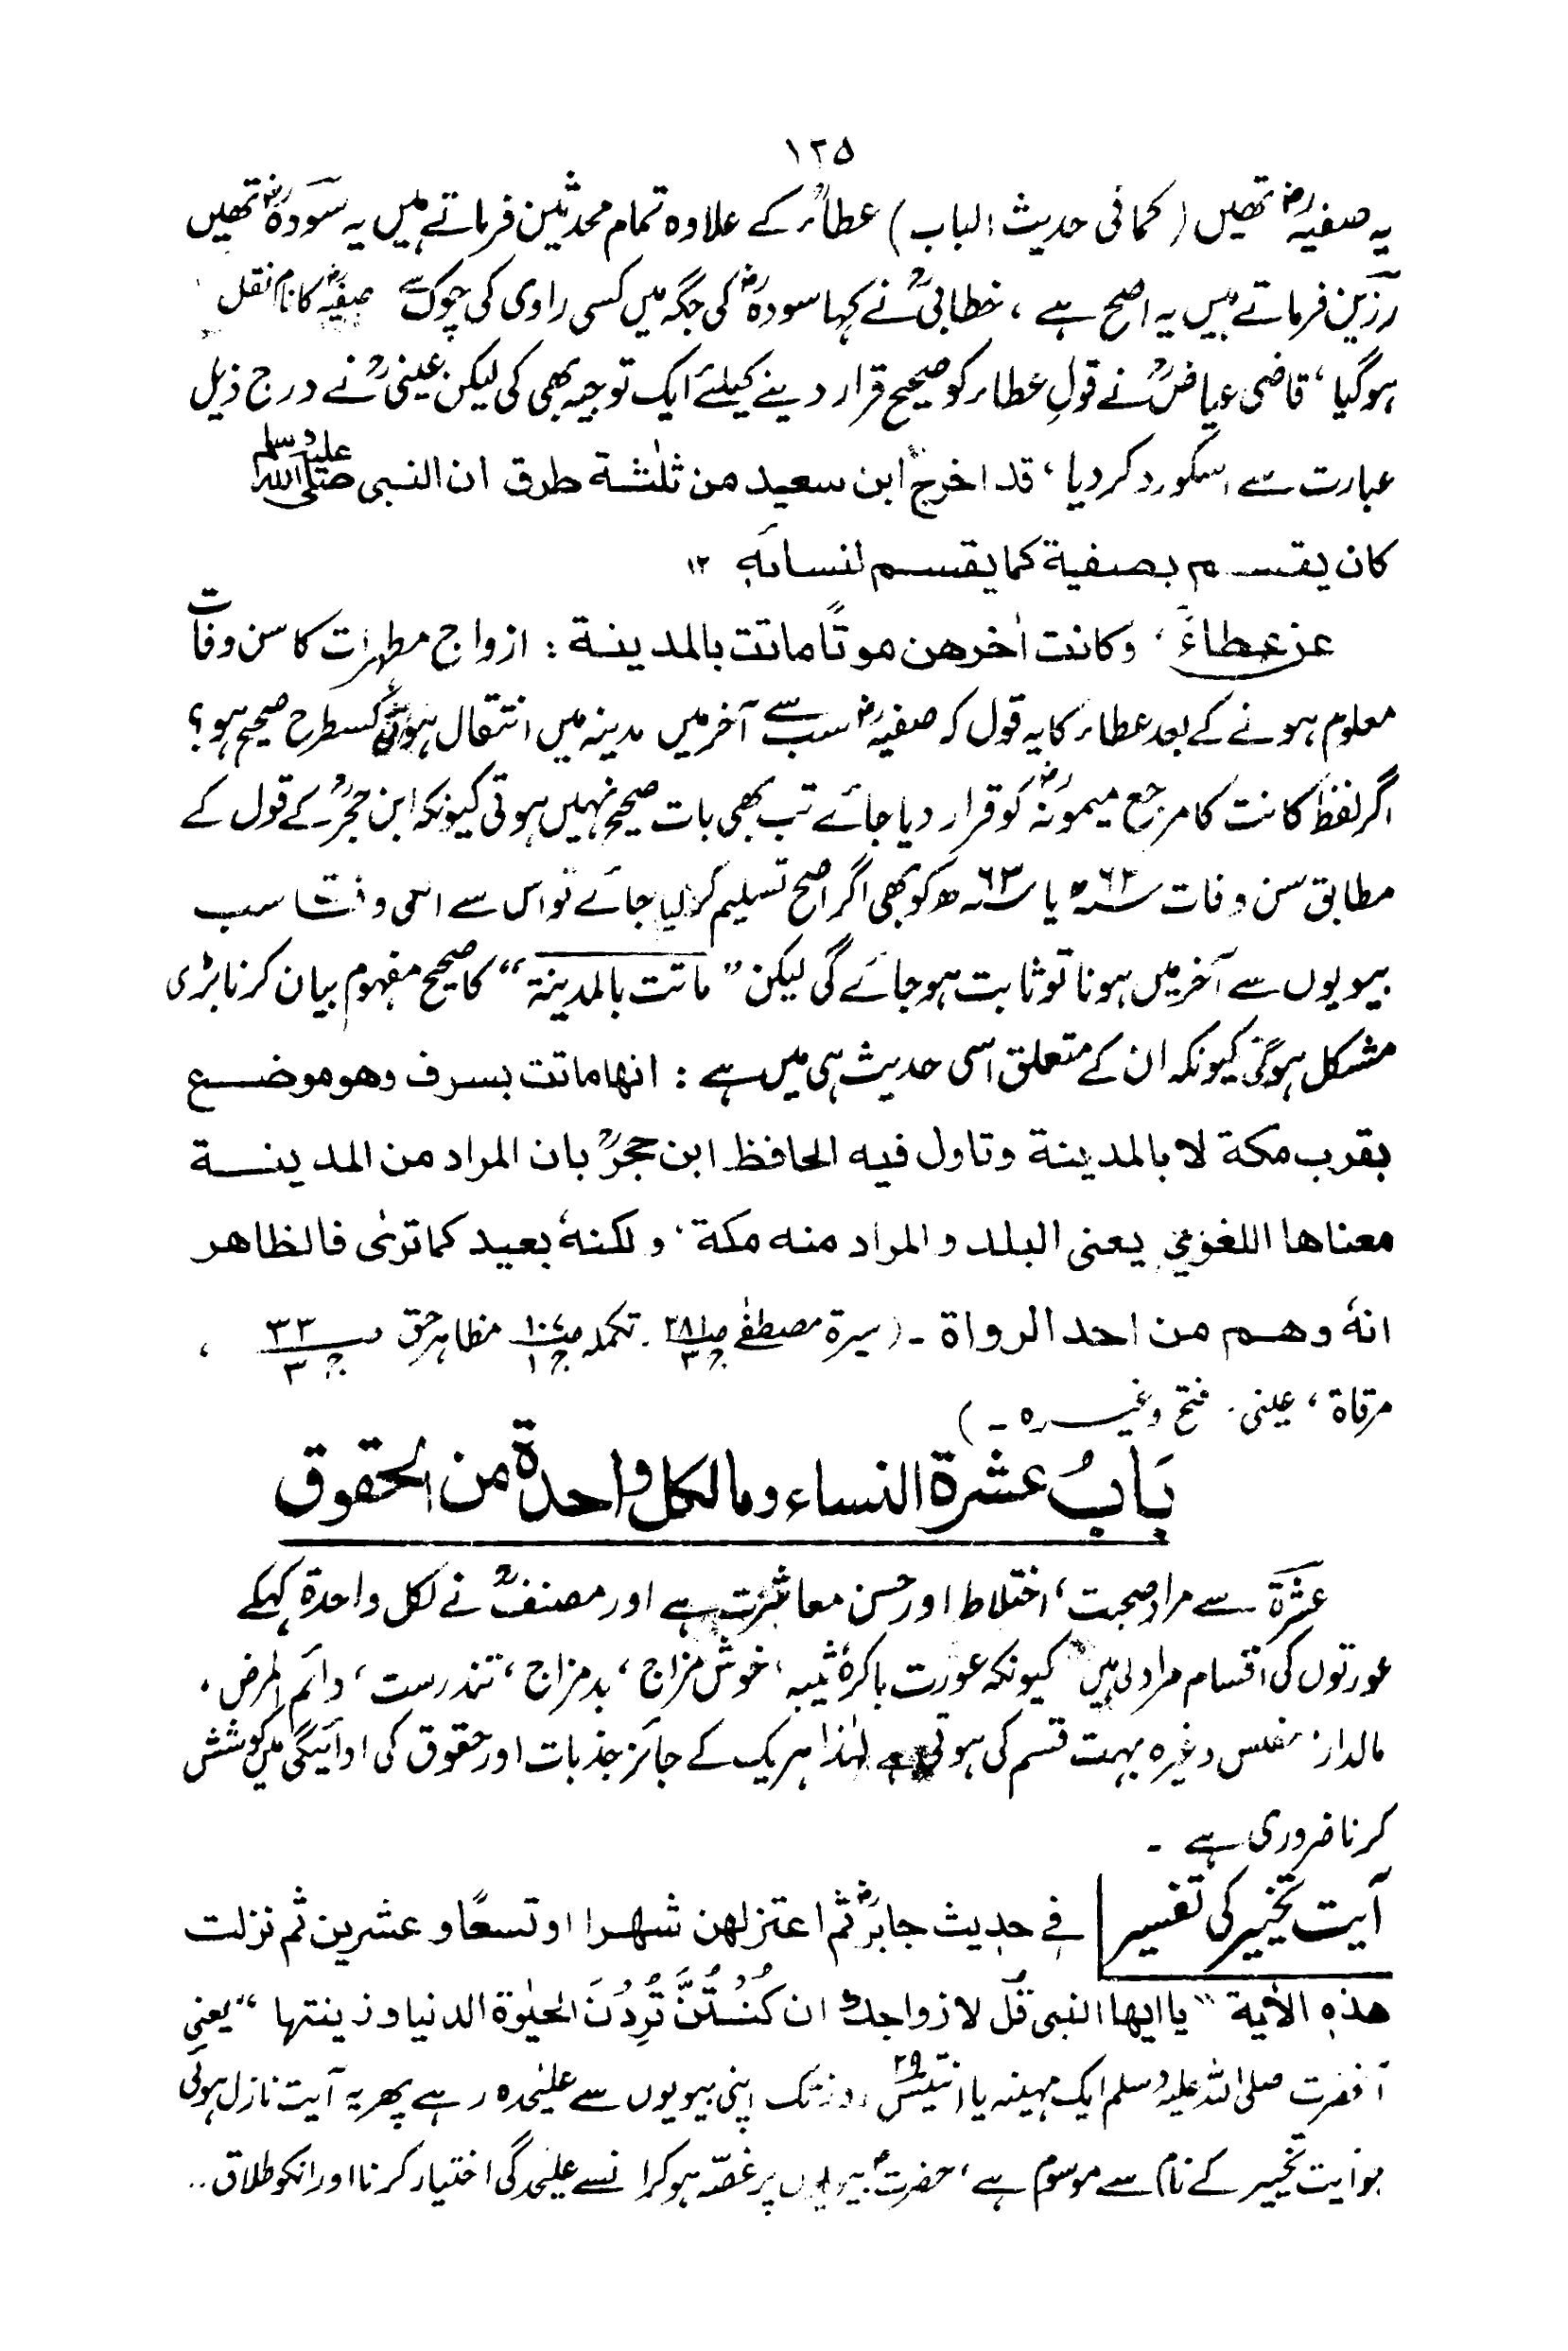 ۱۲۵
یہ صفیہؓ تھیں (کمافی حدیث الباب) عطاءؒ کے علاوہ تمام محدثین فرماتے ہیں یہ سَودہؓ تھیں
رزین فرماتے ہیں یہ اصح ہے، خطابیؒ نے کہا سودہؓ کی جگہ میں کسی راوی کی چوک سے صفیہؓ کا نام نقل
ہوگیا، قاضی عیاضؒ نے قولِ عطاء کو صحیح قرار دینے کیلئے ایک توجیہ بھی کی لیکن عینیؒ نے درج ذیل
عبارت سے اسکورد کردیا، قد اخرج ابن سعید من ثلٰثۃ طرق ان النبی ﷺ
کان یقسم بصفیۃ کما یقسم لنسائہ ۱۲
عن عطاءؒ، وکانت اٰخرھن موتًا ماتت بالمدینۃ: ازواج مطہرات کا سن وفات
معلوم ہونے کے بعد عطاء کا یہ قول کہ صفیہؓ سب سے آخر میں مدینہ میں انتقال ہوئیں کسطرح صحیح ہو؟
اگر لفظ کانت کا مرجع میمونہؓ کو قرار دیا جائے تب بھی بات صحیح نہیں ہوتی کیونکہ ابن حجرؒ کے قول کے
مطابق سن وفات ۶۲ھ یا ۶۳ھ کو بھی اگر اصح تسلیم کرلیا جائے تو اس سے انکی وفات سب
بیویوں سے آخر میں ہونا تو ثابت ہوجائے گی لیکن “ماتت بالمدینۃ” کا صحیح مفہوم بیان کرنا بڑی
مشکل ہوگی کیونکہ ان کے متعلق اسی حدیث ہی میں ہے: انھا ماتت بسرف وھو موضع
بقرب مکۃ لا بالمدینۃ وتاول فیہ الحافظ ابن حجرؒ بان المراد من المدینۃ
معناھا اللغوي یعنی البلد والمراد منہ مکۃ، ولکنہٗ بعید کما ترٰی فالظاھر
انہٗ وھم من احد الرواۃ۔(سیرۃ مصطفٰے ص۲۸۱ ج۳۔ تکملہ ص۱۰۷ ج۱ مظاہر حق ص۳۳ ج۳،
مرقاۃ، عینی۔ فتح وغیرہ۔)
بَابُ عشرۃ النساء وما لکل واحدۃ من الحقوق
عشرۃ سے مراد صحبت، اختلاط اور حسن معاشرت ہے اور مصنفؒ نے لکل واحدۃ کہکے
عورتوں کی اقسام مراد لی ہیں کیونکہ عورت باکرہ ثیبہ، خوش مزاج، بدمزاج، تندرست، دائم المرض،
مالدار، مفلس وغیرہ بہت قسم کی ہوتی ہے لہٰذا ہریک کے جائز جذبات اور حقوق کی ادائیگی میں کوشش
کرنا ضروری ہے ۔
آیت تخییر کی تفسیر | فے حدیث جابرؓ ثم اعتزلھن شھرا او تسعًا وعشرین ثم نزلت
ھذہ الاٰیۃ “یا ایھا النبی قل لازواجک ان کُنْتُنَّ تُرِدْنَ الحیٰوۃ الدنیا وزینتھا” یعنی
آنحضرت صلی اللہ علیہ وسلم ایک مہینہ یا انتیس ۲۹ روز تک اپنی بیویوں سے علیٰحدہ رہے پھر یہ آیت نازل ہوئی
جو آیت تخییر کے نام سے موسوم ہے، حضرتؐ بیویوں پر غصّہ ہوکر انسے علیٰحدگی اختیار کرنا اور انکو طلاق..